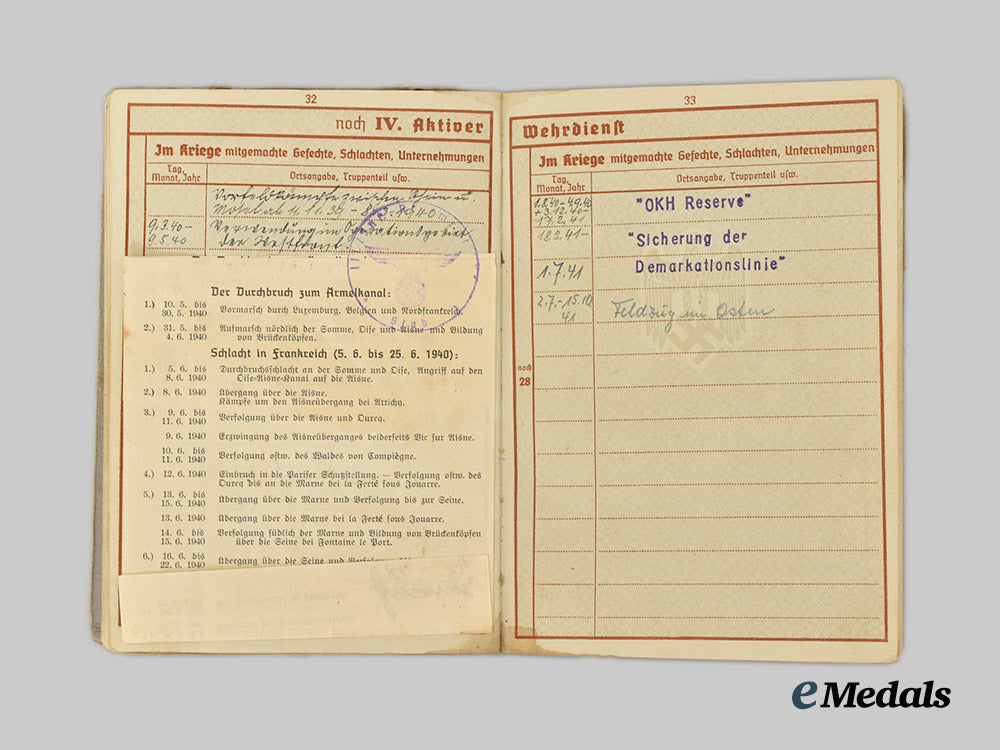 32
noch IV. Aktiver
Im Kriege mitgemachte Gefechte, Schlachten, Unternehmungen
Tag, Monat, Jahr
Ortsangabe, Truppenteil usw.
Vorfeldkämpfe zwischen Rhein u.
Mosel ab 4.11.39 - 8.3.1940
9.3.40-
9.5.40
Verwendung im Operationsgebiet
der Westfront.
Stab
Der Durchbruch zum Ärmelkanal:
1.) 10. 5. bis
30. 5. 1940
Vormarsch durch Luxemburg, Belgien und Nordfrankreich.
2.) 31. 5. bis
4. 6. 1940
Aufmarsch nördlich der Somme, Oise und Aisne und Bildung
von Brückenköpfen.
Schlacht in Frankreich (5. 6. bis 25. 6. 1940):
1.) 5. 6. bis
8. 6. 1940
Durchbruchsschlacht an der Somme und Oise, Angriff auf den
Oise-Aisne-Kanal auf die Aisne.
2.) 8. 6. 1940
Übergang über die Aisne.
Kämpfe um den Aisneübergang bei Attichy.
3.) 9. 6. bis
11. 6. 1940
Verfolgung über die Aisne und Ourcq.
9. 6. 1940
Erzwingung des Aisneüberganges beiderseits Vic sur Aisne.
10. 6. bis
11. 6. 1940
Verfolgung ostw. des Waldes von Compiègne.
4.) 12. 6. 1940
Einbruch in die Pariser Schutzstellung. — Verfolgung ostw. des
Ourcq bis an die Marne bei la Ferté sous Jouarre.
5.) 13. 6. bis
15. 6. 1940
Übergang über die Marne und Verfolgung bis zur Seine.
13. 6. 1940
Übergang über die Marne bei la Ferté sous Jouarre.
14. 6. bis
15. 6. 1940
Verfolgung südlich der Marne und Bildung von Brückenköpfen
über die Seine bei Fontaine le Port.
6.) 16. 6. bis
22. 6. 1940
Übergang über die Seine und Verfolgung
33
Wehrdienst
Im Kriege mitgemachte Gefechte, Schlachten, Unternehmungen
Tag, Monat, Jahr
Ortsangabe, Truppenteil usw.
1.8.40-4.9.40
+3.12.40-
17.2.41
"OKH Reserve"
18.2.41-
1.7.41
"Sicherung der
Demarkationslinie"
2.7.-15.10
41
Feldzug im Osten
noch
28
eMedals